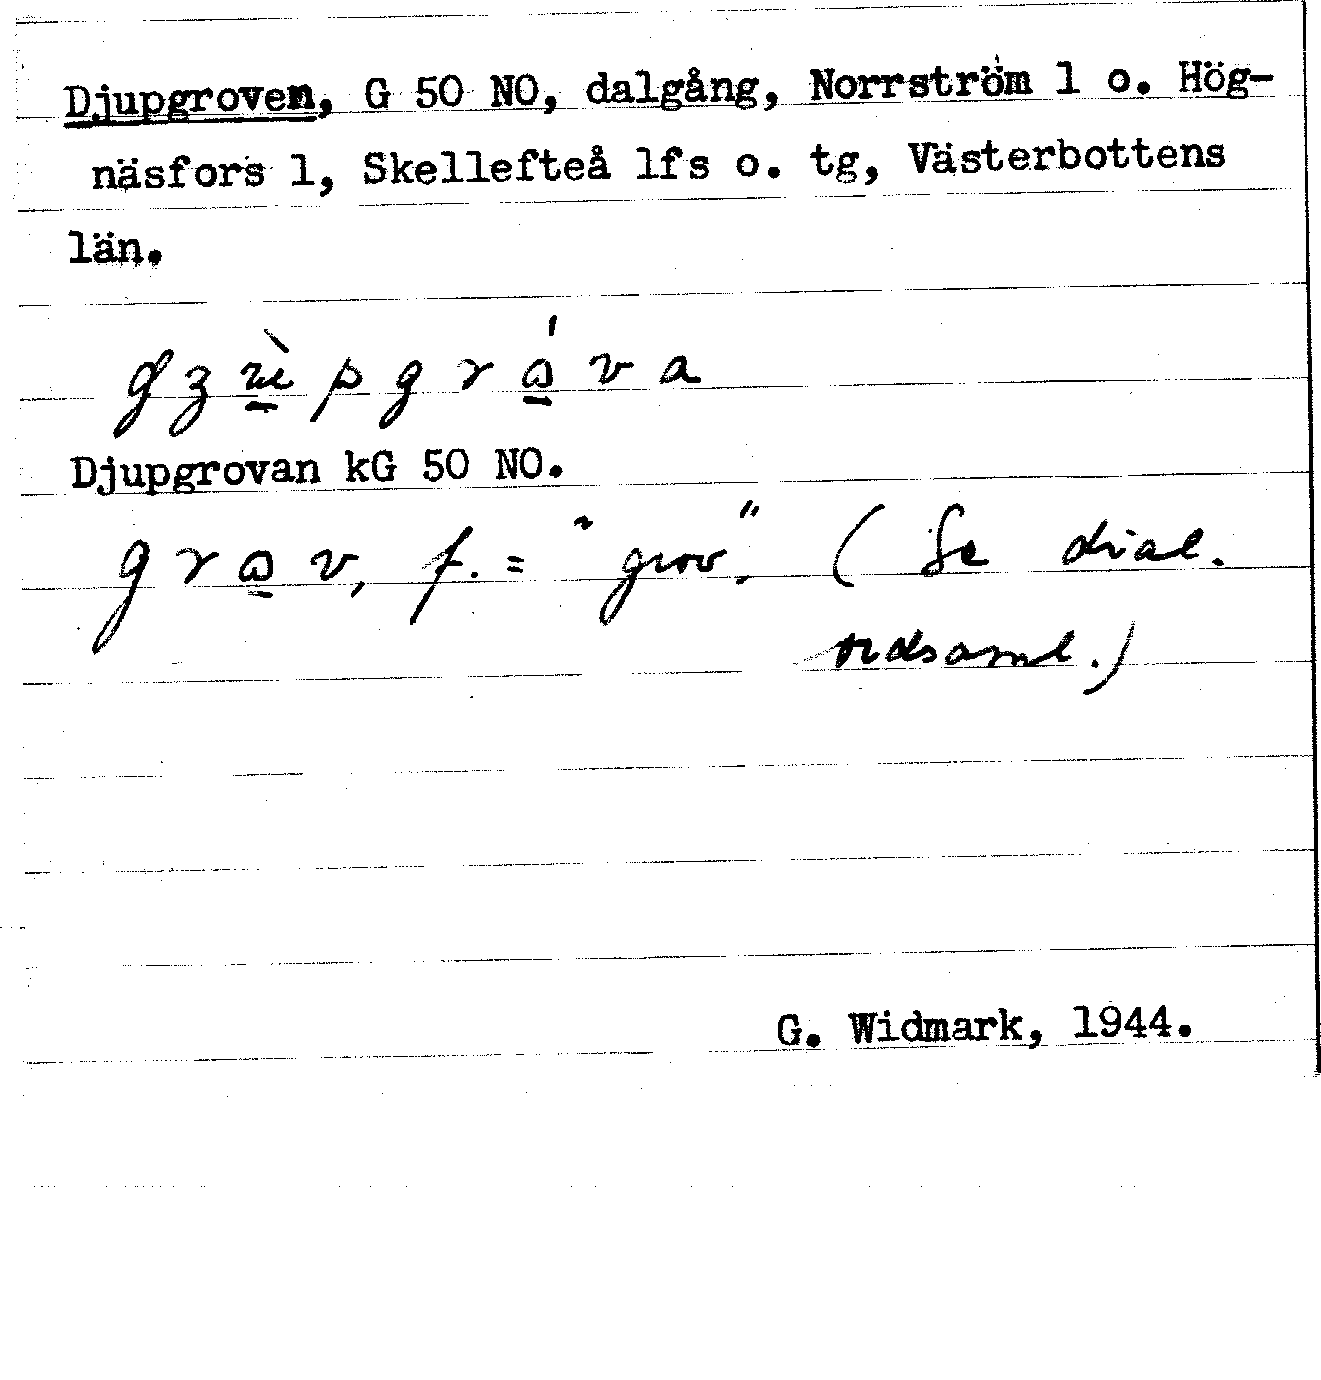 Djupgroven, G 50 NO, dalgång, Norrström 1 o. Hög-
näsfors 1, Skellefteå lfs o. tg, Västerbottens
län.
Djupgrovan kG 50 NO.
f. = "grov". (Se dial.
ordsaml.)
G. Widmark, 1944.